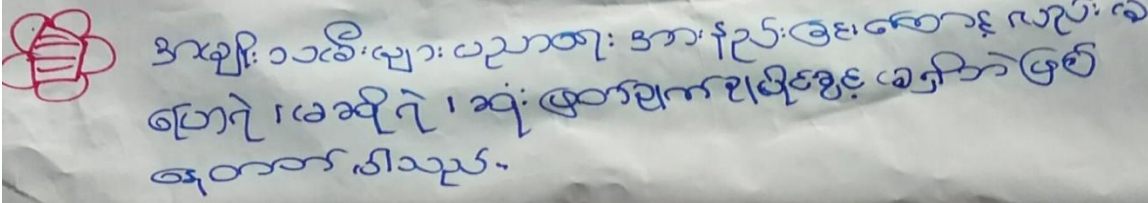 အမျိုးသသမီးများ ပညာရေး အားနည်းခြင်းကြောင့် လည်း မ
ပြောရဲ ၊ မဆိုရဲ ၊ ဆုံးဖြတ်ချက်ချပိုင်ခွင့် မရှိဘဲ ဖြစ်
နေတတ်ပါသည်။